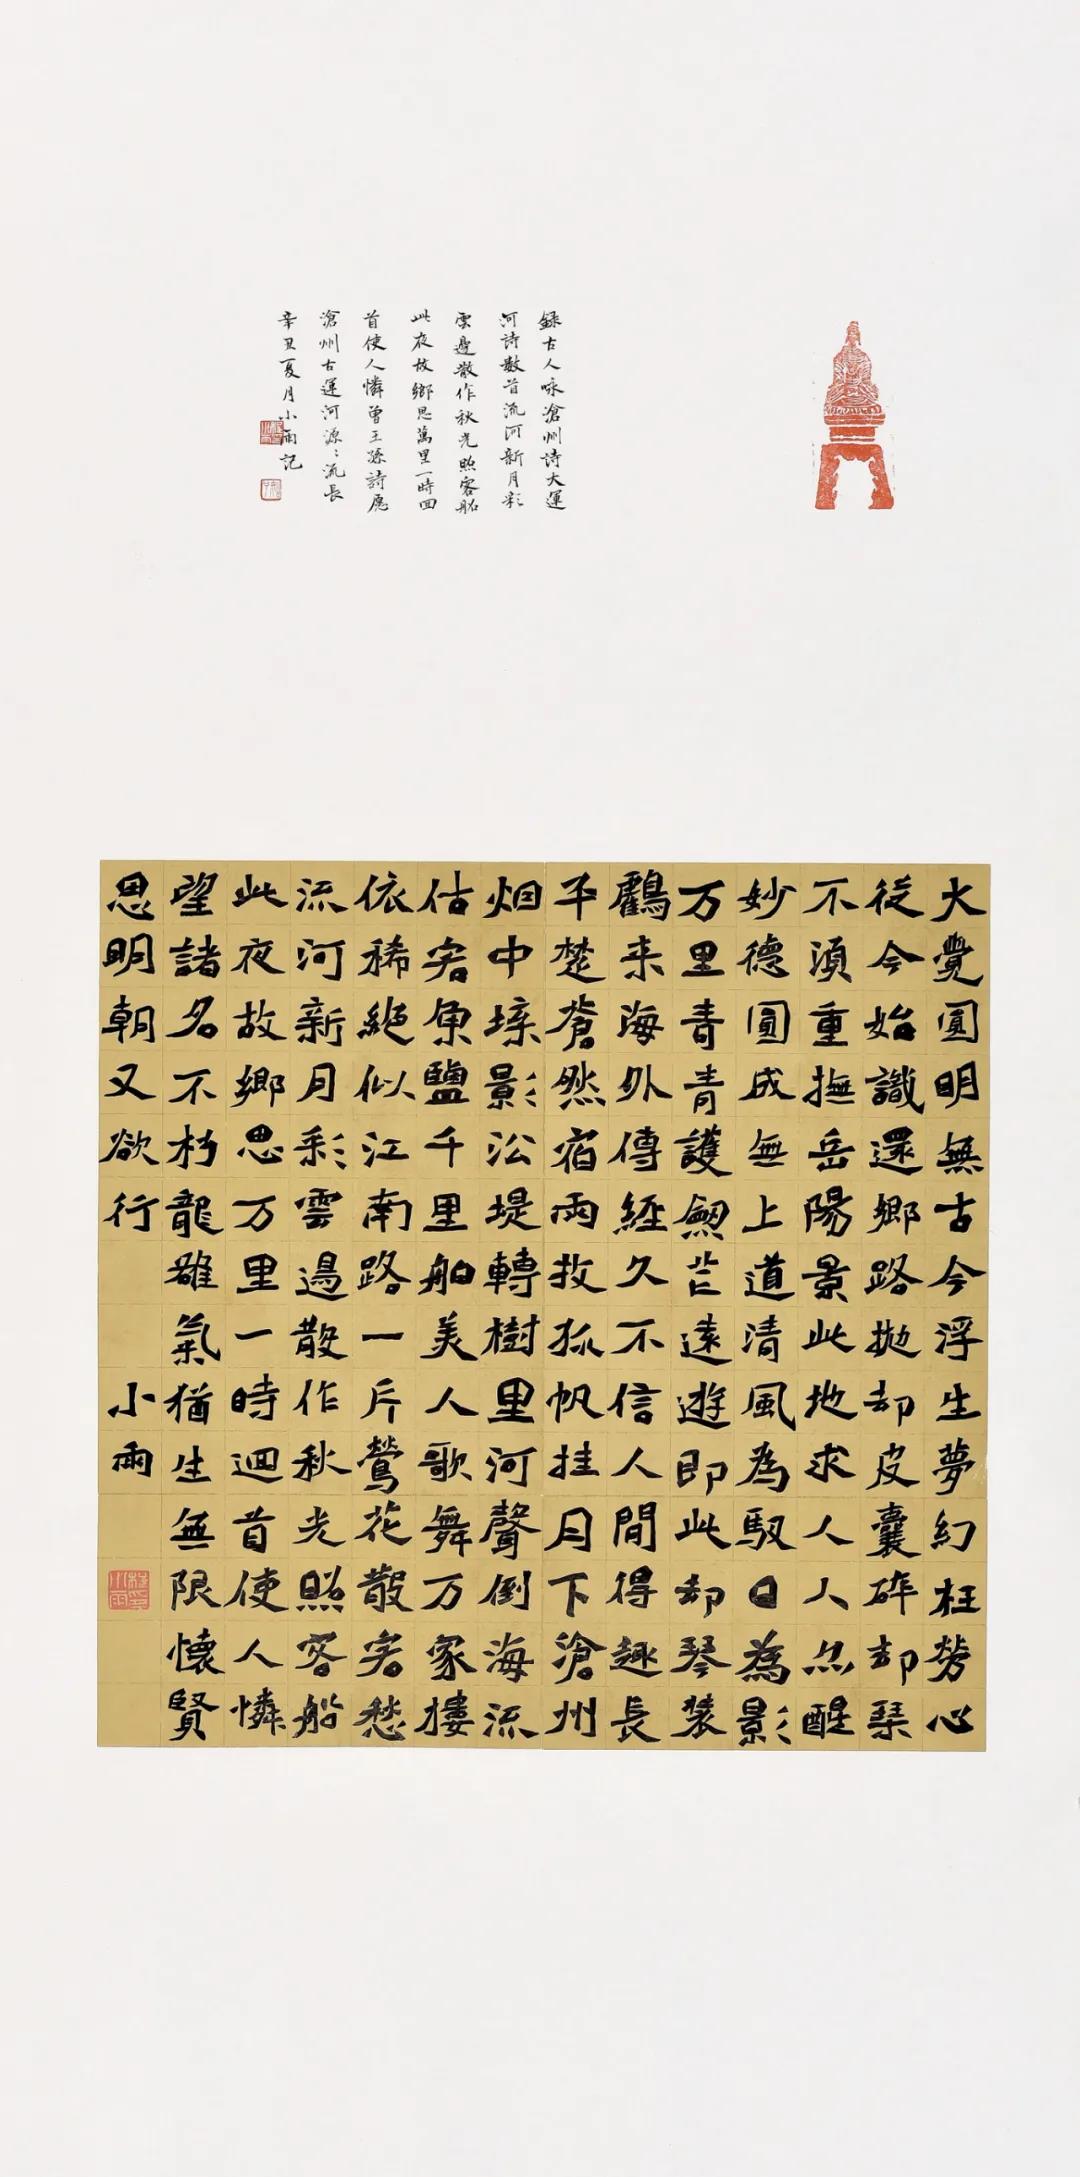 錄古人咏滄州詩大運
河詩數首流河新月彩
雲邊散作秋光照客船
此夜故鄉思萬里一時回
首使人憐曾王孫詩愿
滄州古運河源〻流長
辛丑夏月小雨記
大覺圓明無古今浮生夢幻枉勞心
從今始識還鄉路拋却皮囊碎却琹
不湏重撫岳陽景此地求人人尒醒
妙德圓成無上道清風為馭日為影
万里青青護劒芒遠遊即此却琴裝
鸖来海外傳經久不信人間得趣長
平楚蒼然宿雨收孤帆挂月下滄州
烟中埰影㳂堤轉樹里河聲倒海流
估客魚鹽千里舶美人歌舞万家摟
依稀絕似江南路一片鶯花散客愁
流河新月彩雲邊散作秋光照客船
此夜故鄉思万里一時迴首使人憐
望諸名不朽龍雖氣猶生無限懷賢
思明朝又欲行 小雨